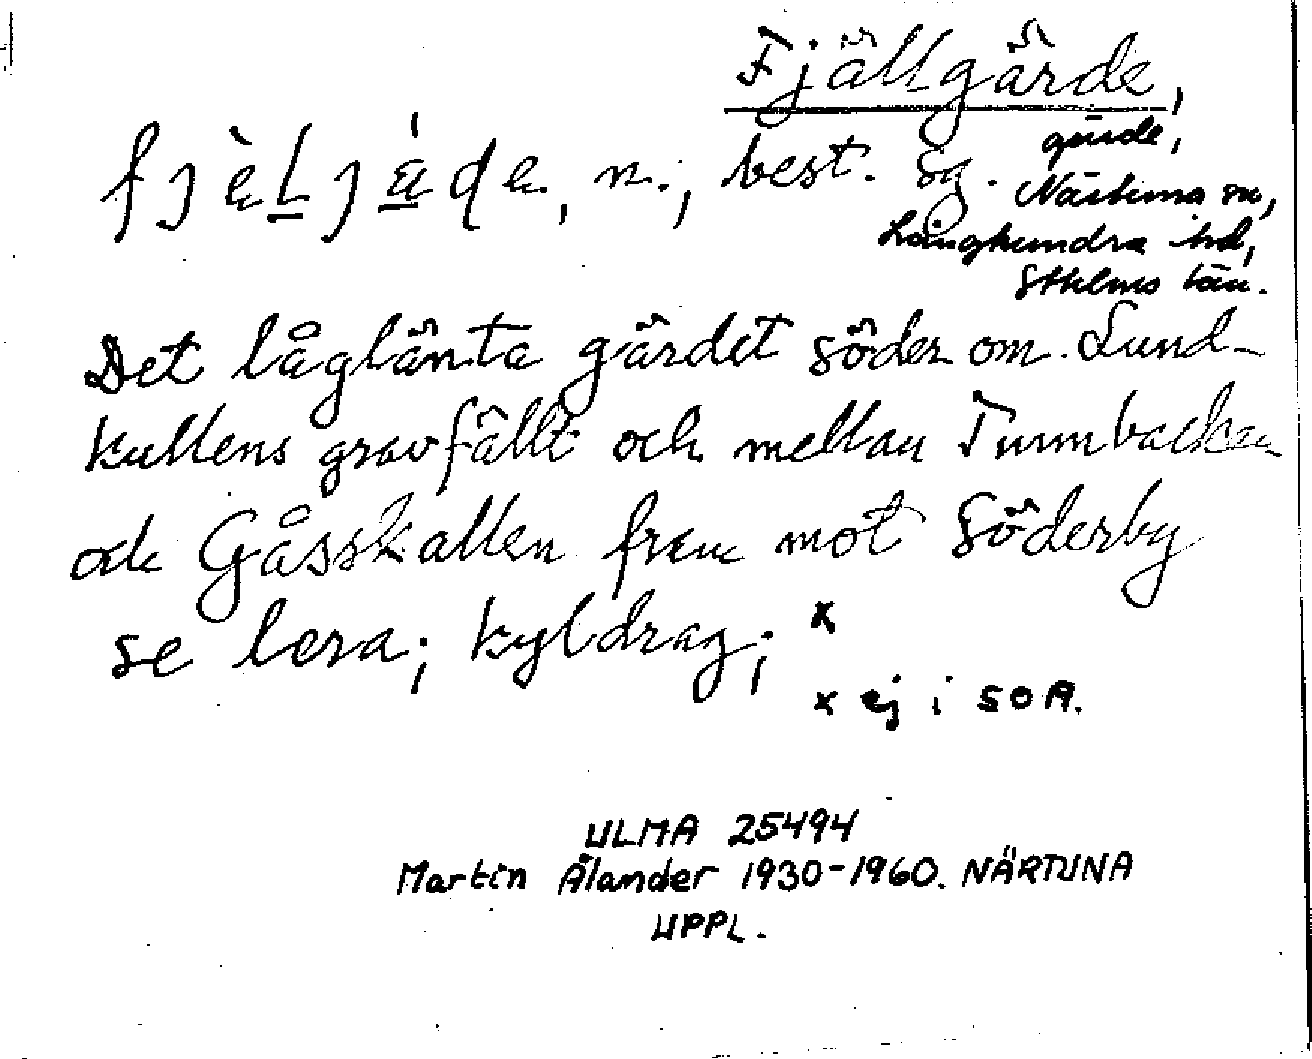 Fjällgärde,
fjèLjä́de, n.; best. sg.
gärde,
Närtuna sn,
Långhundra hd,
Sthlms län.
Det låglänta gärdet söder om Lund-
kullens gravfällt och mellan Tunnbacken
och Gåsskallen fram mot Söderby
se lera; kyldrag; x
x ej i SOA.
ULMA 25494
Martin Ålander 1930-1960. NÄRTUNA
UPPL.